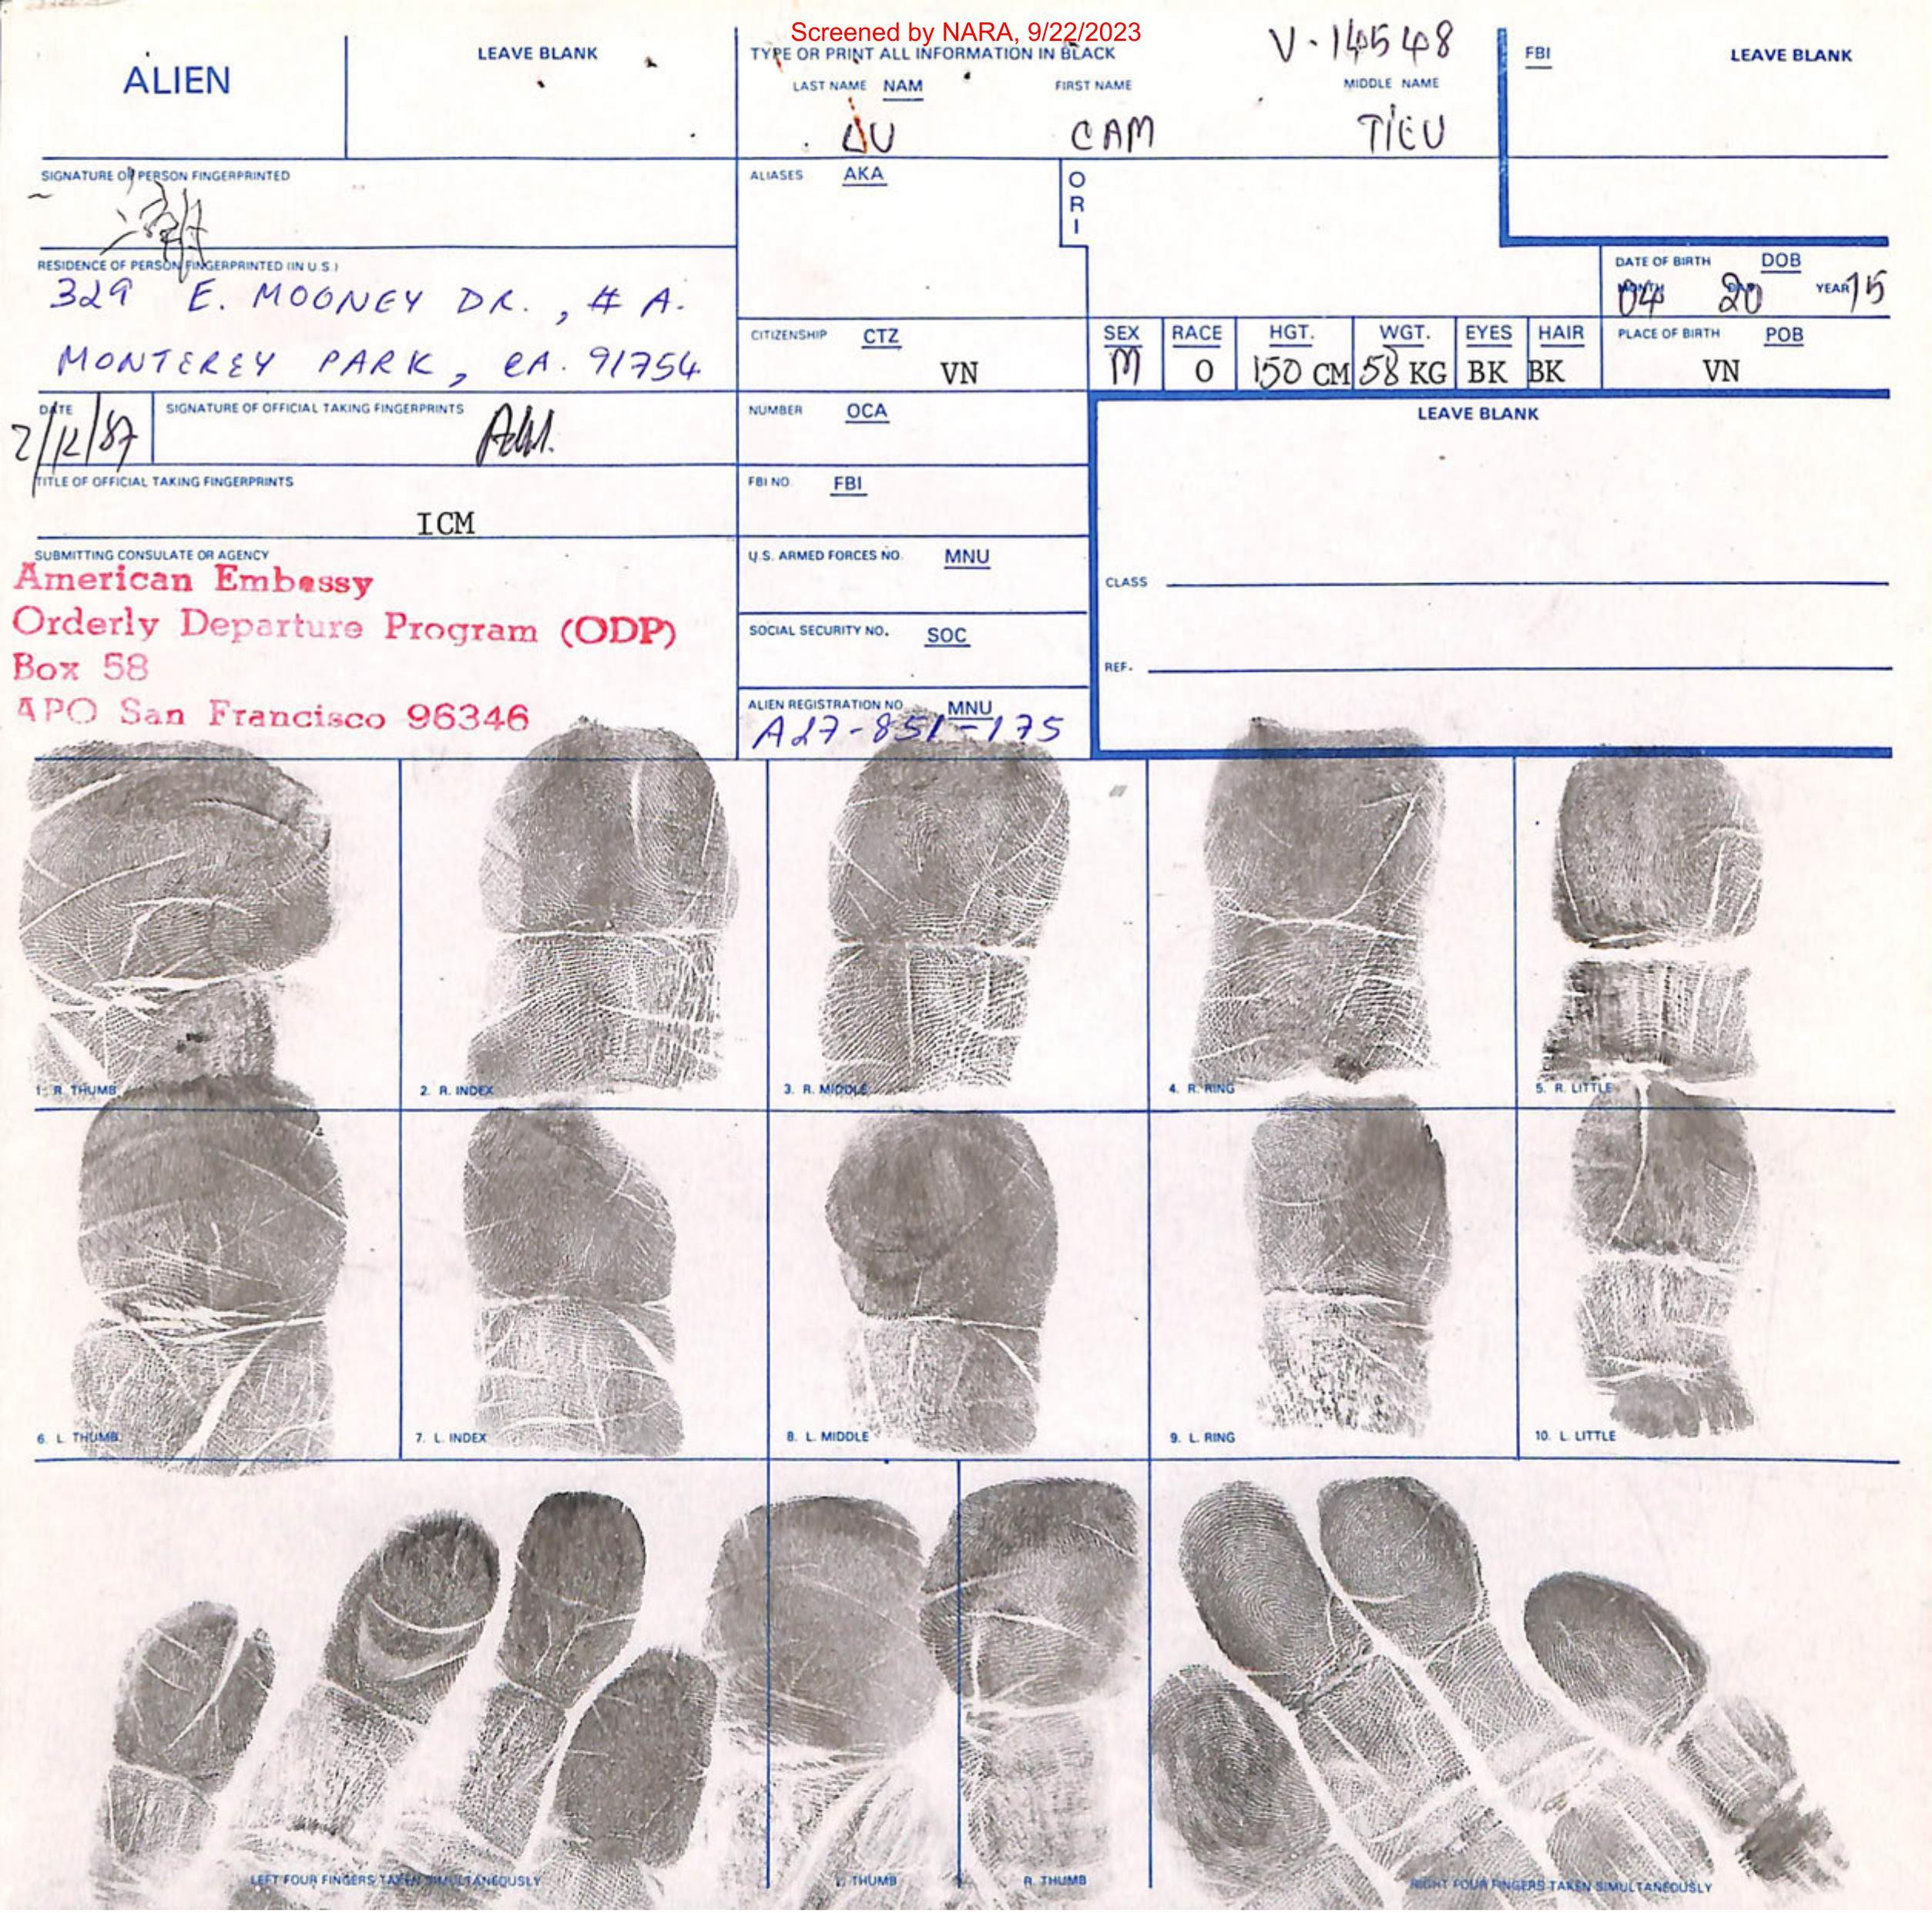 Screened by NARA, 9/22/2023
V-14548
ALIEN
LEAVE BLANK
TYPE OR PRINT ALL INFORMATION IN BLACK
LAST NAME NAM FIRST NAME MIDDLE NAME
CAM TIEU
FBI LEAVE BLANK
SIGNATURE OF PERSON FINGERPRINTED
ALIASES AKA
ORI
RESIDENCE OF PERSON FINGERPRINTED (IN U.S.)
329 E. MOONEY DR., # A.
MONTEREY PARK, CA. 91754
DATE OF BIRTH DOB
MONTH DAY YEAR
04 20 15
CITIZENSHIP CTZ
VN
SEX RACE HGT. WGT. EYES HAIR
M O 150 CM 58 KG BK BK
PLACE OF BIRTH POB
VN
DATE
2/12/87
SIGNATURE OF OFFICIAL TAKING FINGERPRINTS
NUMBER OCA
LEAVE BLANK
TITLE OF OFFICIAL TAKING FINGERPRINTS
ICM
FBI NO. FBI
SUBMITTING CONSULATE OR AGENCY
American Embassy
Orderly Departure Program (ODP)
Box 58
APO San Francisco 96346
U.S. ARMED FORCES NO. MNU
CLASS
SOCIAL SECURITY NO. SOC
REF.
ALIEN REGISTRATION NO. MNU
A27-851-175
1. R. THUMB
2. R. INDEX
3. R. MIDDLE
4. R. RING
5. R. LITTLE
6. L. THUMB
7. L. INDEX
8. L. MIDDLE
9. L. RING
10. L. LITTLE
LEFT FOUR FINGERS TAKEN SIMULTANEOUSLY
L. THUMB
R. THUMB
RIGHT FOUR FINGERS TAKEN SIMULTANEOUSLY